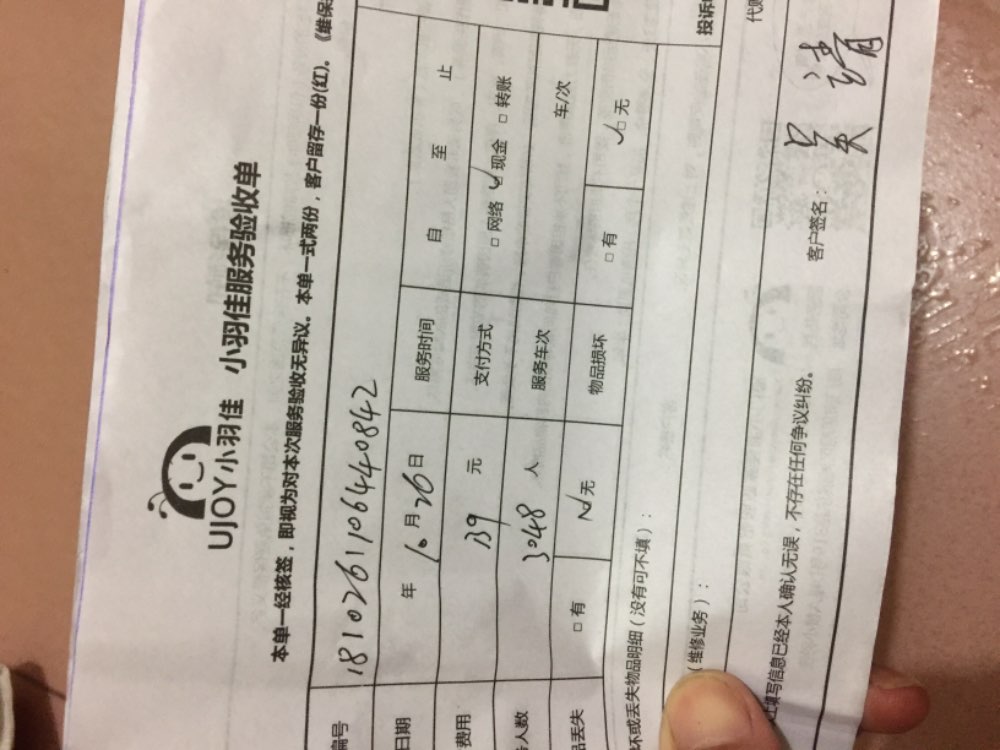 UJOY小羽佳 小羽佳服务验收单
本单一经核签，即视为对本次服务验收无异议。本单一式两份，客户留存一份(红)。《维保
编号 181026110644 40842
日期 年 10月26日 服务时间 自 至 止
费用 39 元 支付方式 □网络 ☑现金 □转账
人数 3048 人 服务车次 车/次
品丢失 □有 ☑无 物品损坏 □有 ☑无
坏或丢失物品明细（没有可不填）：
（维修业务）： 投诉
填写信息已经本人确认无误，不存在任何争议纠纷。
客户签名： 吴清